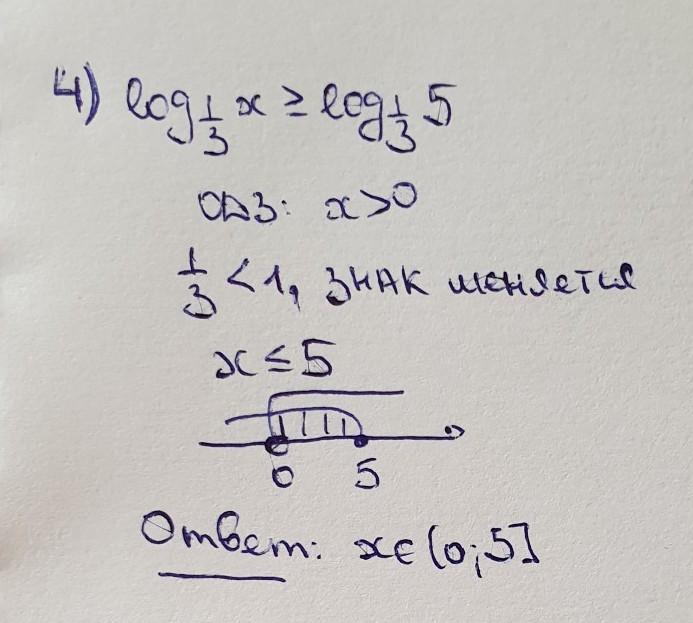 4) log_{1/3} x ≥ log_{1/3} 5
ОДЗ: x>0
1/3 < 1, знак меняется
x ≤ 5
0 5
Ответ: x∈(0;5]